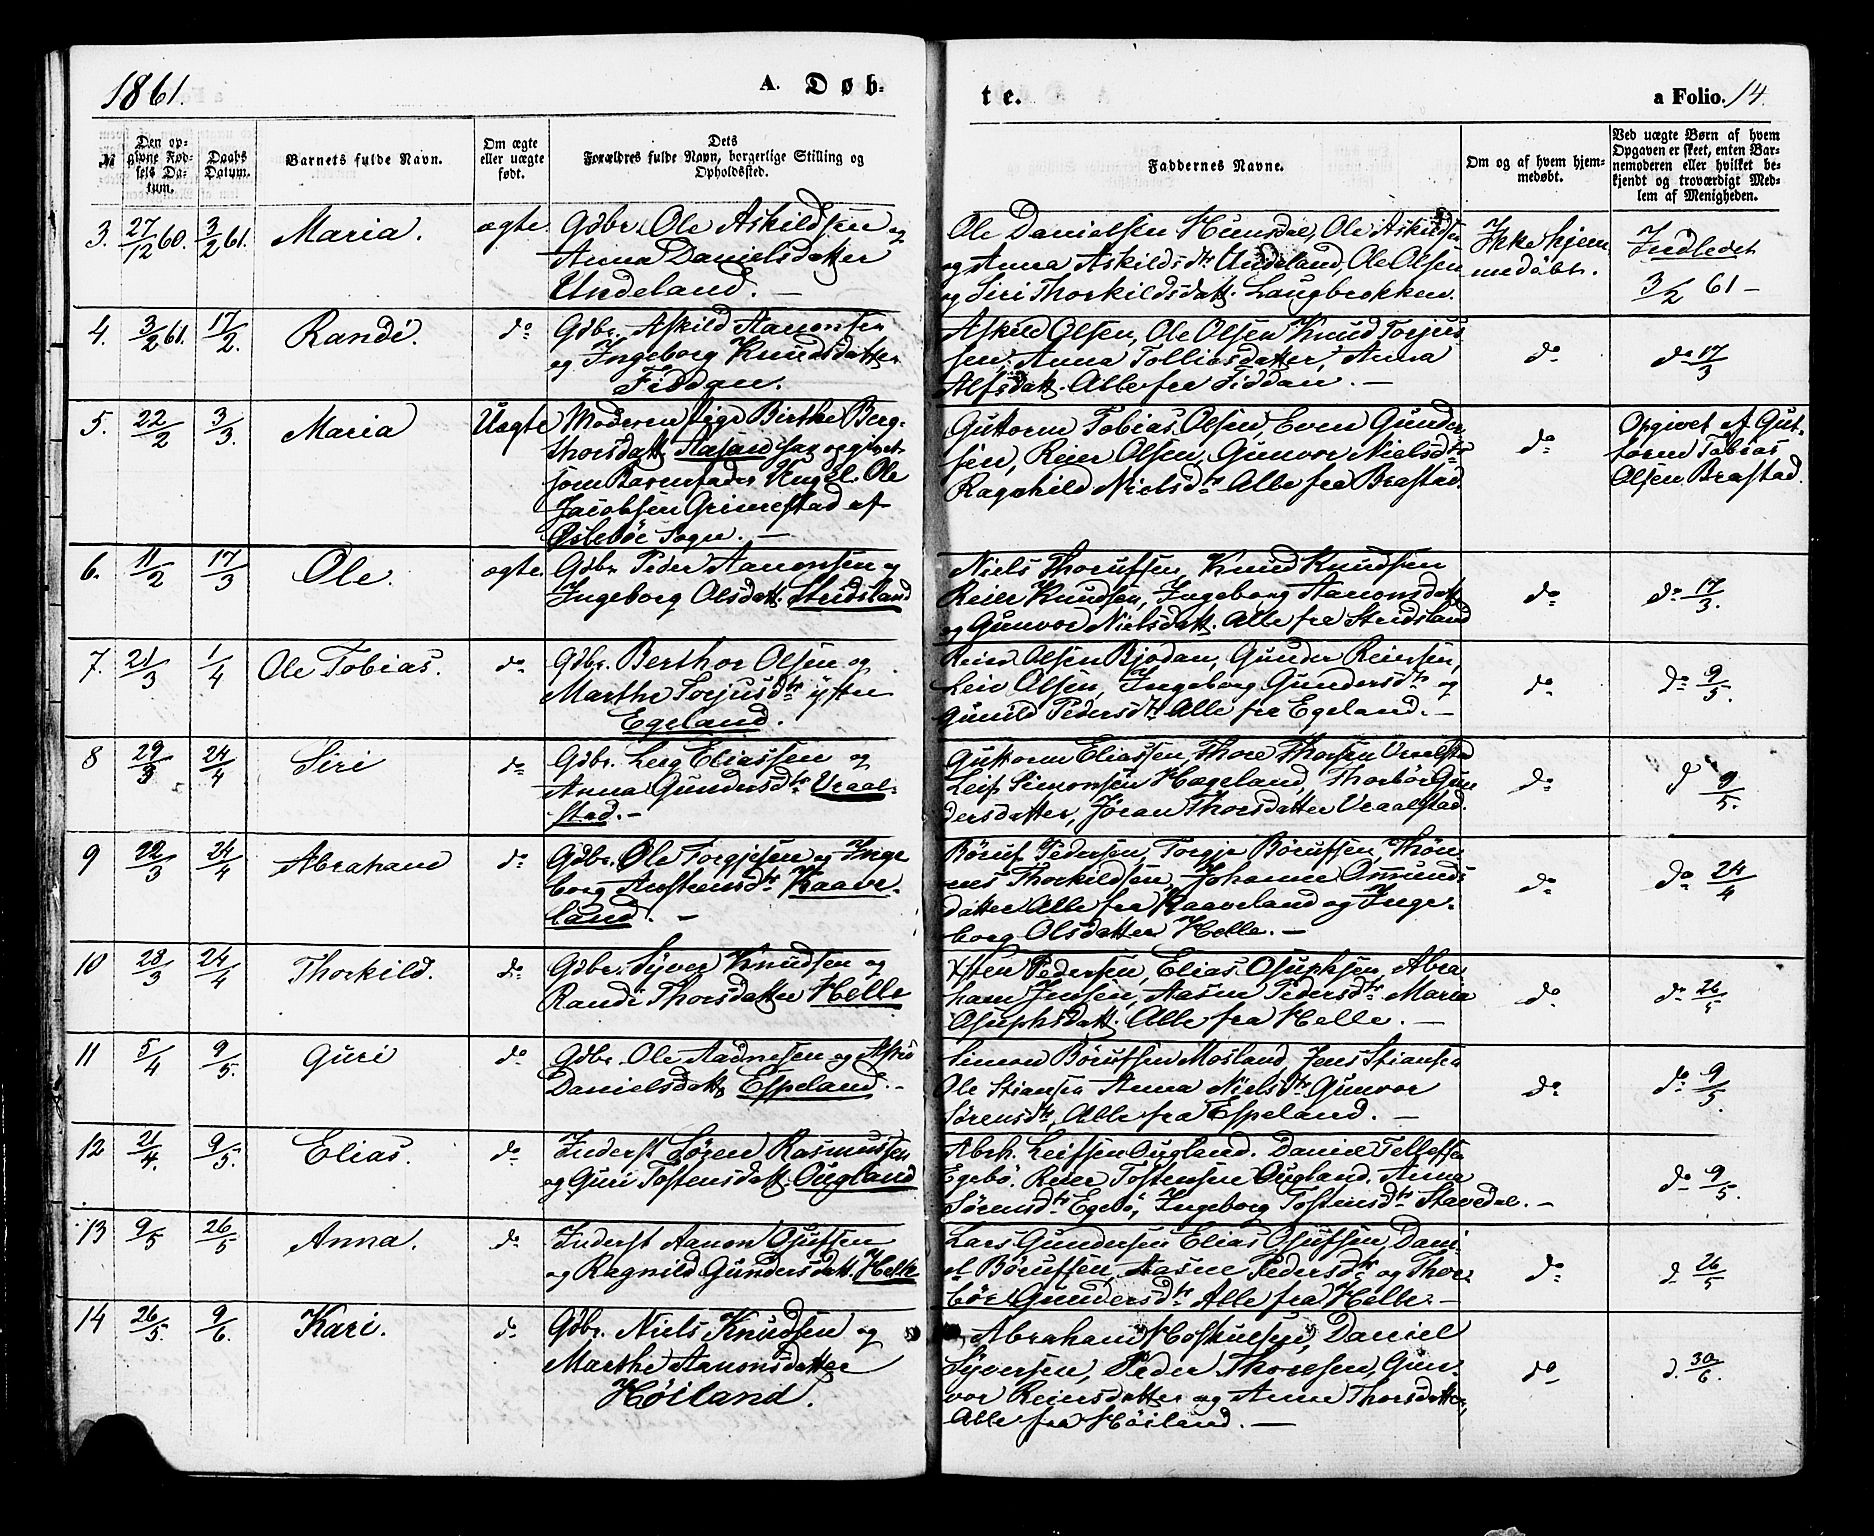 1861.
A. Døb-
te.
a Folio. 14.
№
Den op-
givne Fød-
sels Da-
tum.
Daabs
Datum.
Barnets fulde Navn.
Om ægte
eller uægte
født.
Dets
Forældres fulde Navn, borgerlige Stilling og
Opholdssted.
Faddernes Navne.
Om og af hvem hjem-
medøbt.
Ved uægte Børn af hvem
Opgaven er skeet, enten Bar-
nemoderen eller hvilket be-
kjendt og troværdigt Med-
lem af Menigheden.
3. 27/12 60. 3/2 61. Maria. ægte
Gdbr. Ole Askildsen og
Anna Danielsdatter
Undeland. —
Ole Danielsen Hunsdal, Ole Askildsen
og Anna Askildsdtr Undeland, Ole Olsen
og Siri Thorkildsdatt. Laugbrokken.
Ikke hjem
medøbt.
Indledet
3/2 61 —
4. 3/2 61. 17/2. Randi. do
Gdbr. Askild Aanonsen
og Ingeborg Knudsdatter
Fiddan.
Askild Olsen, Ole Olsen Knud Torjus
sen, Anna Tolliasdatter, Anna
Alfsdatt. Alle fra Fiddan. —
do
do 17/3
5. 22/2 3/3. Maria Uægte
Moderen Pige Birthe Berg-
thorsdatt. Aasand har opgivet
som Barnefader Ungk. Ole
Jacobsen Grimestad af
Øslebøe Sogn. —
Guttorm Tobias Olsen, Even Gunder
sen, Reier Olsen, Gunvor Nielsdtr
Ragnhild Nielsdtr Alle fra Brastad.
do
Opgivet af Gut-
torm Tobias
Olsen Brastad.
6. 11/2 17/3 Ole. ægte.
Gdbr. Peder Aanonsen og
Ingeborg Olsdatt. Steidsland
Niels Thorufsen, Knud Knudsen
Reier Knudsen, Ingeborg Aanonsdatt
og Gunvor Nielsdatt. Alle fra Steidsland
do
do 17/3.
7. 21/3 1/4 Ole Tobias. do
Gdbr. Berthor Olsen og
Marthe Torjusdtr ytre
Egeland.
Reier Olsen Bjodan, Gunder Reiersen,
Leiv Olsen, Ingeborg Gundersdtr og
Gunild Pedersdtr Alle fra Egeland. —
do
do 9/5.
8 29/3 24/4 Siri do
Gdbr. Lerg Eliassen og
Anna Gundersdtr Vraal-
stad. —
Guttorm Eliassen, Thore Thorsen Vraalstad
Leif Simonsen Hægeland, Thorbør Gun
dersdatter, Jøran Thorsdatter Vraalstad.
do
d 9/5.
9 22/3 24/4 Abraham do
Gdbr. Ole Torgjesen og Inge
borg Anstensdtr Kaave-
land. —
Børuf Pedersen, Torgje Børufsen, Thøn-
nes Thorkildsen, Johanne Omunds
datter Alle fra Kaaveland og Inge-
borg Olsdatter Helle. —
do
do 24/4
10 28/3 24/4 Thorkild. do
Gdbr. Syver Knudsen og
Randi Thorsdatter Helle
Østen Pedersen, Elias Osuphsen, Abra
ham Jensen, Aasne Pedersdtr Maria
Osuphsdatt. Alle fra Helle. —
do
do 26/5
11 5/4 9/5. Guri do
Gdbr. Ole Aadnesen og Astri
Danielsdatt Espeland. -
Simon Børufsen Mosland, Jens Stiansen
Ole Stiansen Anna Nielsdtr Gunvor
Sørensdtr, Alle fra Espeland. —
do
do 9/5.
12 21/4. 9/5. Elias. do
Inderst Søren Rasmussen
og Guri Tostensdatt. Ougland
Abrh. Leifsen Ougland. Daniel Tellefsen
Egebø. Reier Tostensen Ougland. Anna
Sørensdtr Egebø, Ingeborg Tostensdtr Stavedal. —
do 9/5.
13 9/5 26/5 Anna. do
Inderst Aanon Osufsen
og Ragnild Gundersdatt. Helle
Lars Gundersen Elias Osufsen, Dani-
el Børufsen, Aasne Pedersdtr og Thor
bør Gundersdtr Alle fra Helle. —
do
d. 26/5
14 26/5. 9/6. Kari. do
Gdbr. Niels Knudsen og
Marthe Aanonsdatter
Høiland.
Abraham Hoskulsen, Daniel
Syversen, Peder Thoresen, Gun-
vor Reiersdatter og Anne Thorsdatter,
Alle fra Høiland. —
do
d. 30/6.